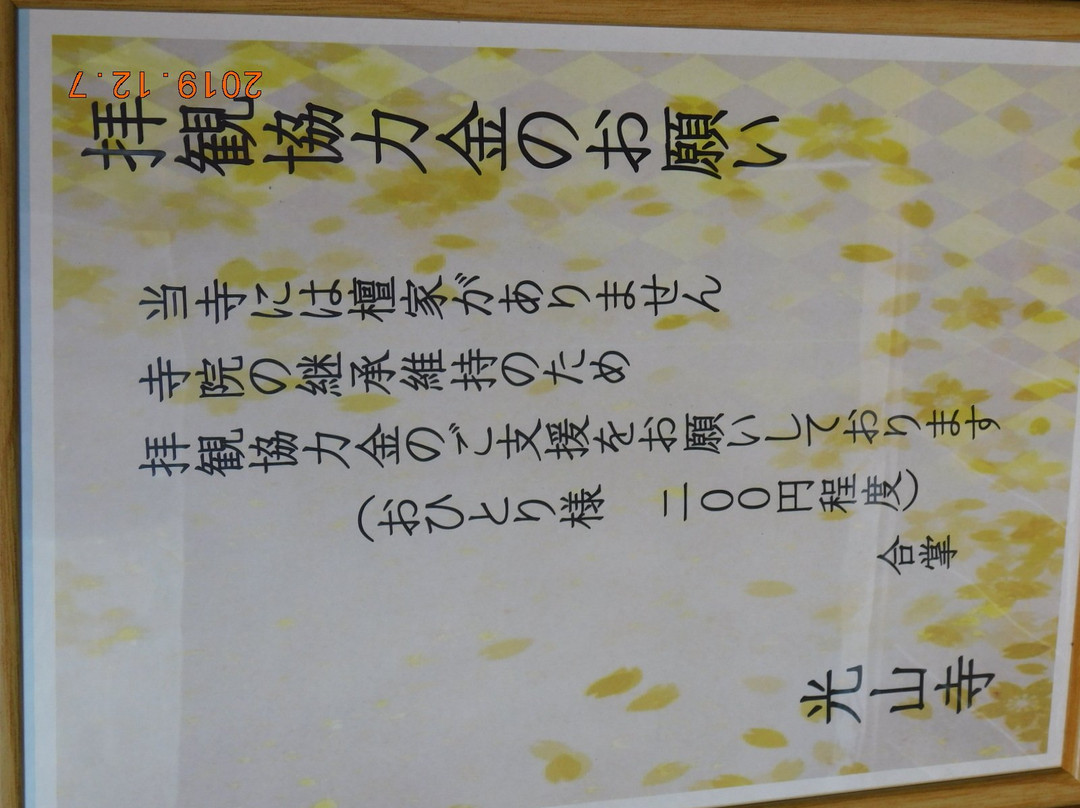 拝観協力金のお願い
当寺には檀家がありません
寺院の継承維持のため
拝観協力金のご支援をお願いしております
(おひとり様　二〇〇円程度)
合掌
光山寺
2019.12.7